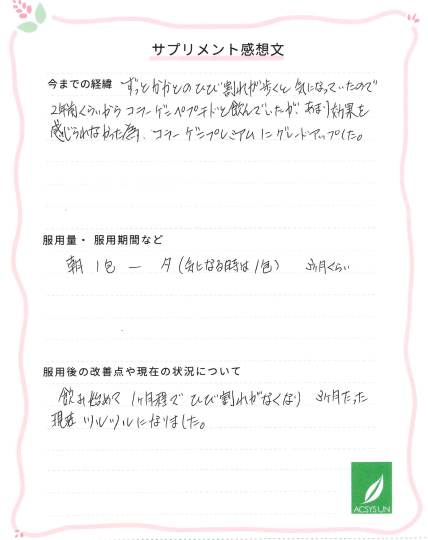 サプリメント感想文
今までの経緯 ずっとかかとのひび割れが歩くと気になっていたので
2年前くらいからコラーゲンペプチドを飲んでいたが、あまり効果を
感じられなかった為、コラーゲンプレミアムにグレードアップした。
服用量・服用期間など
朝 1包 ー 夕(気になる時は1包) 3ヶ月くらい
服用後の改善点や現在の状況について
飲み始めて 1ヶ月程でひび割れがなくなり 3ヶ月たった
現在 ツルツルになりました。
ACSYSUN